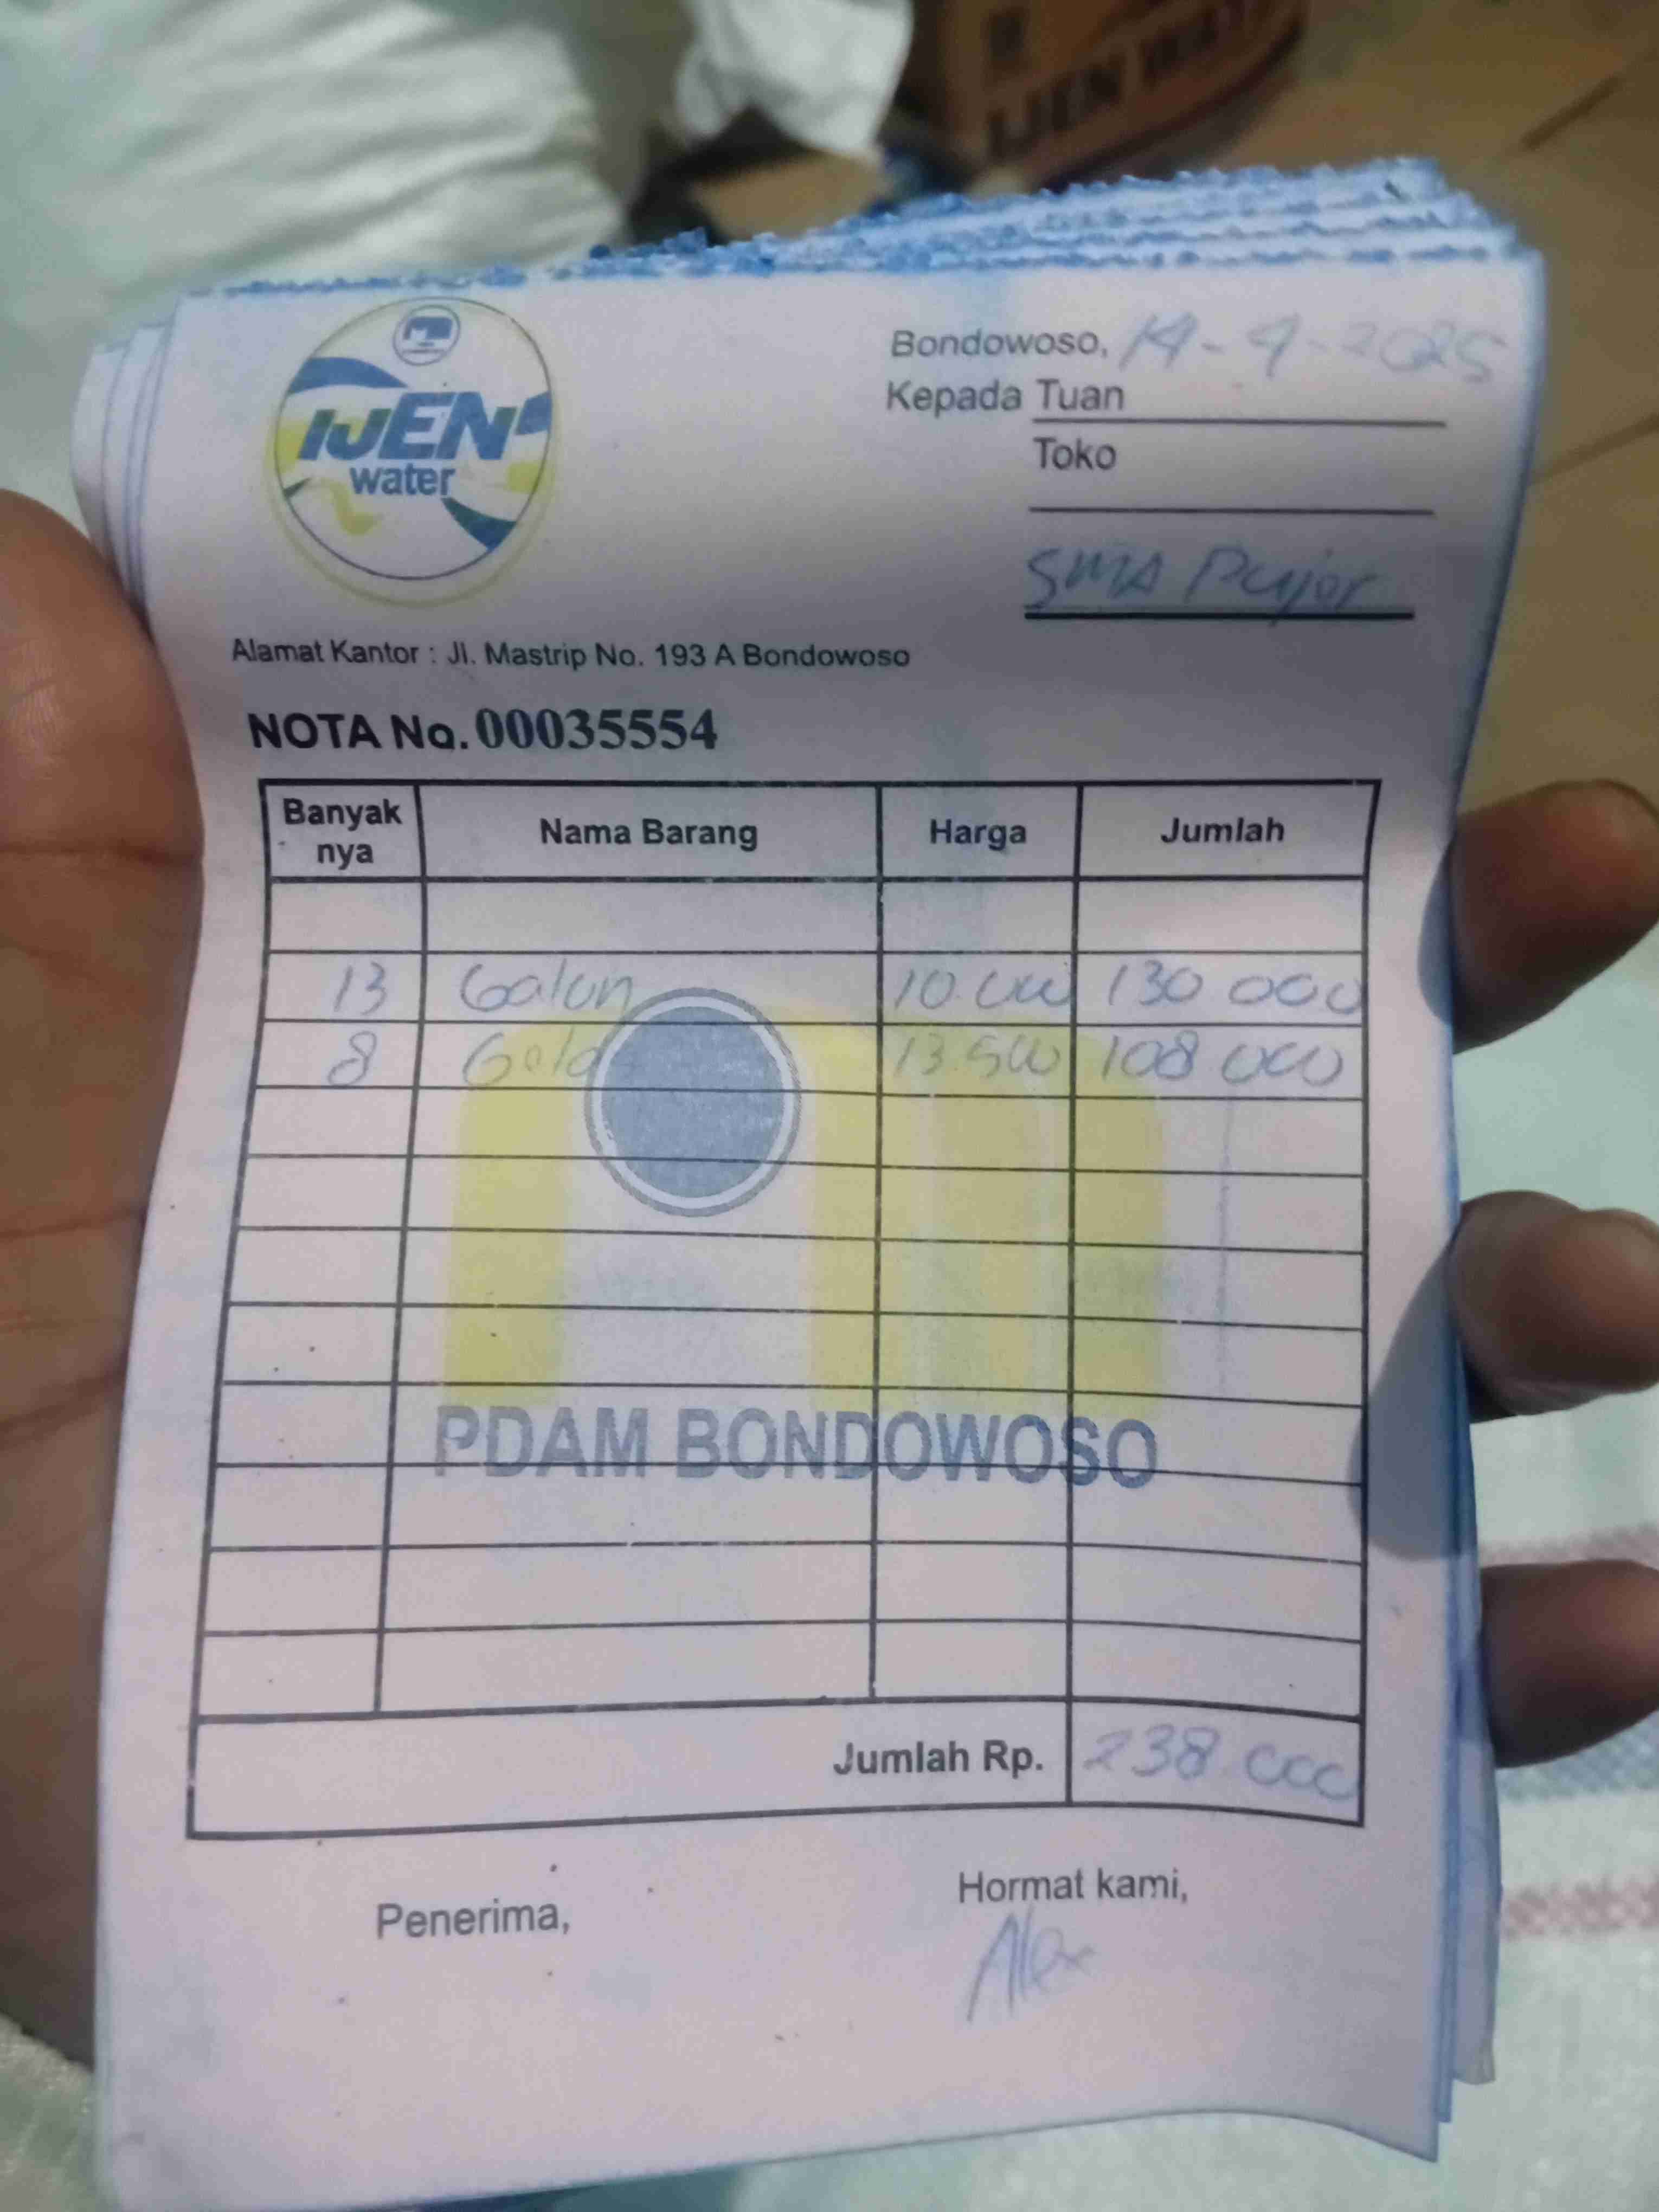 IJEN WATER
IJEN
water
Bondowoso, 14-4-2025
Kepada Tuan
Toko
SMA Pujer
Alamat Kantor : Jl. Mastrip No. 193 A Bondowoso
NOTA No. 00035554
Banyak nya Nama Barang Harga Jumlah
13 Galon 10.000 130 000
8 Galon 13.500 108 000
PDAM BONDOWOSO
Jumlah Rp. 238.000
Penerima,
Hormat kami,
Alex